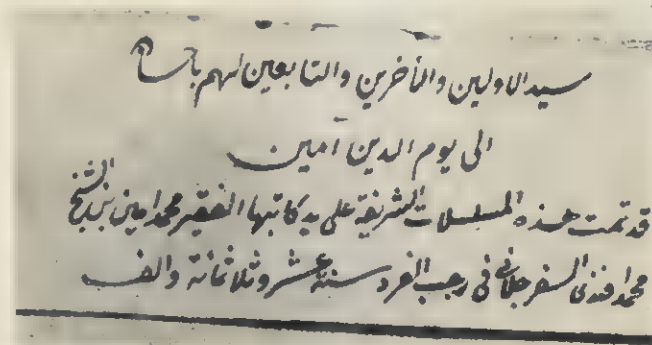 سيد الاولين والأخرين والتابعين لهم باحسان
الى يوم الدين امين
قد تمت هذه المسلسلات الشريفة على يد كاتبها الفقير محمد امين بن الشيخ
محمد افندى السفرجلاني فى رجب الفرد سنة عشر وثلاثمائة والف